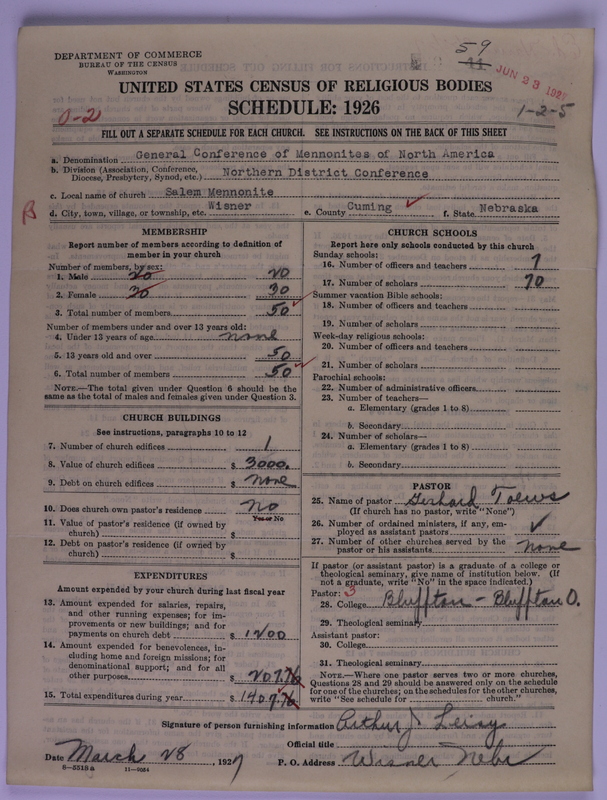 DEPARTMENT OF COMMERCE
BUREAU OF THE CENSUS
WASHINGTON
59
11
JUN 23 192
UNITED STATES CENSUS OF RELIGIOUS BODIES
SCHEDULE: 1926
1-2-5
0-2
FILL OUT A SEPARATE SCHEDULE FOR EACH CHURCH. SEE INSTRUCTIONS ON THE BACK OF THIS SHEET
a. Denomination General Conference of Mennonites of North America
b. Division (Association, Conference, Diocese, Presbytery, Synod, etc.) Northern District Conference
c. Local name of church Salem Mennonite
B
d. City, town, village, or township, etc. Wisner e. County Cuming ✓ f. State Nebraska
MEMBERSHIP
Report number of members according to definition of
member in your church
Number of members, by sex:
1. Male 20 20
2. Female 30 30
3. Total number of members 50 ✓
Number of members under and over 13 years old:
4. Under 13 years of age none
5. 13 years old and over 50
6. Total number of members 50 ✓
NOTE.—The total given under Question 6 should be the
same as the total of males and females given under Question 3.
CHURCH BUILDINGS
See instructions, paragraphs 10 to 12
7. Number of church edifices 1
8. Value of church edifices $ 3000.
9. Debt on church edifices $ none
10. Does church own pastor's residence no
Yes or No
11. Value of pastor's residence (if owned by
church) $
12. Debt on pastor's residence (if owned by
church) $
EXPENDITURES
Amount expended by your church during last fiscal year
13. Amount expended for salaries, repairs,
and other running expenses; for im-
provements or new buildings; and for
payments on church debt $ 1200
14. Amount expended for benevolences, in-
cluding home and foreign missions; for
denominational support; and for all
other purposes $ 207.76
15. Total expenditures during year $ 1407.76
CHURCH SCHOOLS
Report here only schools conducted by this church
Sunday schools:
16. Number of officers and teachers 7
17. Number of scholars 70
Summer vacation Bible schools:
18. Number of officers and teachers
19. Number of scholars
Week-day religious schools:
20. Number of officers and teachers
21. Number of scholars
Parochial schools:
22. Number of administrative officers
23. Number of teachers—
a. Elementary (grades 1 to 8)
b. Secondary
24. Number of scholars—
a. Elementary (grades 1 to 8)
b. Secondary
PASTOR
25. Name of pastor Gerhard Toews
(If church has no pastor, write "None")
26. Number of ordained ministers, if any, em-
ployed as assistant pastors ✓
27. Number of other churches served by the
pastor or his assistants none
If pastor (or assistant pastor) is a graduate of a college or
theological seminary, give name of institution below. (If
not a graduate, write "No" in the space indicated.)
Pastor: 3
28. College Bluffton - Bluffton O.
29. Theological seminary
Assistant pastor:
30. College
31. Theological seminary
NOTE.—Where one pastor serves two or more churches,
Questions 28 and 29 should be answered only on the schedule
for one of the churches; on the schedules for the other churches,
write "See schedule for church."
Signature of person furnishing information Arthur J
Official title
Date March 28, 1927 P. O. Address Wisner Nebr
8—5518a 11—9584